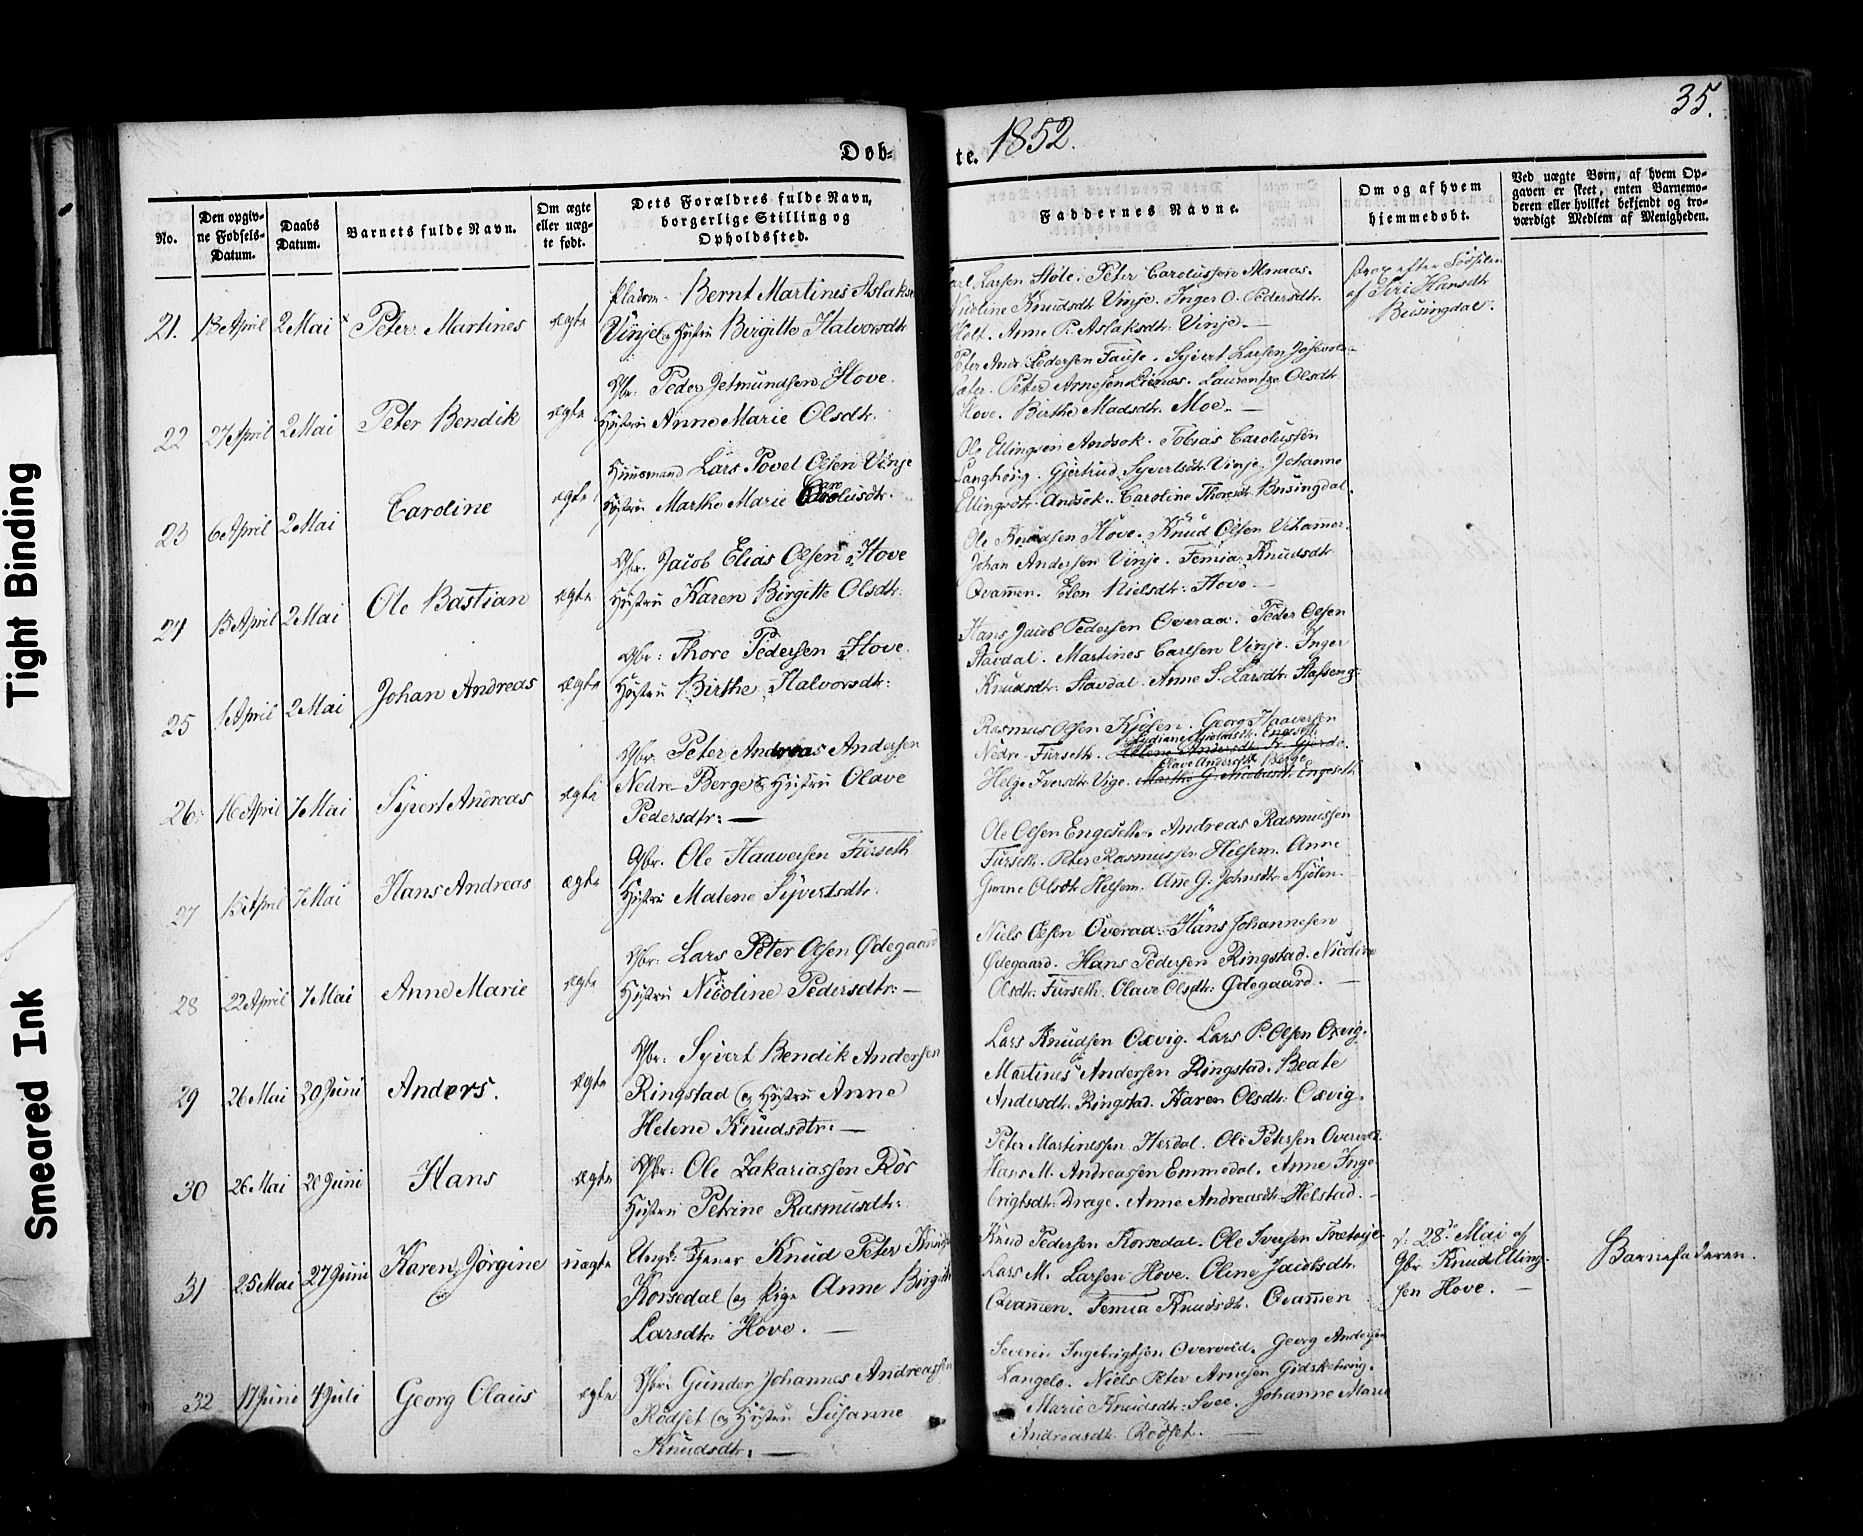 35.
Døb-
te. 1852.
No.
Den opgiv-
ne Fødsels-
Datum.
Daabs
Datum.
Barnets fulde Navn.
Om ægte
eller uæg-
te født.
Dets Forældres fulde Navn,
borgerlige Stilling og
Opholdssted.
Faddernes Navne.
Om og af hvem
hjemmedøbt.
Ved uægte Børn, af hvem Op-
gaven er skeet, enten Barnemo-
deren eller hvilket bekjendt og tro-
værdigt Medlem af Menigheden.
21. 13 April 2 Mai Peter Martines ægte
Bernt Martines Aslaks
Vinje og Hustru Birgitte Halvorsdtr
Larsen Støle. Peter Carolussen Almaas.
Nicoline Knudsdtr Vinje. Inger O. Pedersdtr
Holt. Anne P. Aslaksdtr. Vinje. —
strax efter Fødselen
af Siri Hansdtr
Busingdal.
22 27 April 2 Mai Peter Bendik ægte
Gbr. Peder Jetmundsen Hove.
Hustru Anne Marie Olsdtr.
Peter Andr. Pedersen Fause. Syvert Larsen
Peter Arnesen Lienes. Laurentze Olsdtr
Hove. Birthe Madsdtr. Moe. —
23 6 April 2 Mai Caroline ægte
Huusmand Lars Povel Olsen Vinje
Hustru Marthe Marie Carolusdtr.
Ole Ellingsen Andsok. Tobias Carolussen
Langhøug. Gjertrud Syvertsdtr. Vinje. Johanne
Ellingsdtr. Andsok. Caroline Thoresdtr. Busingdal.
24 15 April 2 Mai Ole Bastian ægte
Gbr. Jacob Elias Olsen Hove
Hustru Karen Birgitte Olsdtr.
Ole Knudsen Hove. Knud Olsen Vihammer.
Johan Andersen Vinje. Temia Knudsdtr
Qvammen. Elen Nielsdtr. Hove —
25 1 April 2 Mai Johan Andreas ægte
Gbr: Thore Pedersen Hove.
Hustru Birthe Halvorsdtr:
Hans Jacob Pedersen Overaa. Peder Olsen
Stavdal. Martines Carlsen Vinje. Inger
Knudsdtr. Stavdal. Anne S. Larsdtr. Staffeng:
26: 16 April 7 Mai Syvert Andreas ægte
Gbr: Peter Andreas Andersen
Nedre Berge & Hustru Olave
Pedersdtr: —
Rasmus Olsen Kjølen. Georg Haaversen
Nedre Furseth. Helene Andersdtr. Gjerde.
Helje Iversdtr. Vige. Marthe G. Nicolusdtr. Engeseth
Olave Andersdtr. Berge
27 15 April 7 Mai Hans Andreas ægte
Gbr. Ole Haaversen Furseth
Hustru Malene Syvertsdtr.
Ole Olsen Engeseth. Andreas Rasmussen
Furseth. Peter Rasmussen Helsem. Anne
Gurine Olsdtr Helsem. Ane G. Johnsdtr. Kjølen.
28 22 April 7 Mai Anne Marie ægte
Gbr: Lars Peter Olsen Ødegaard
Hustru Nicoline Pedersdtr: —
Niels Olsen Overaa. Hans Johannesen
Ødegaard. Hans Pedersen Ringstad. Nicoline
Olsdtr. Furseth. Olave Olsdtr: Ødegaard. —
29 26 Mai 20 Juni Anders. ægte
Gbr: Syvert Bendik Andersen
Ringstad (og Hustru Anne
Helene Knudsdtr: —
Lars Knudsen Oxvig. Lars P. Olsen Oxvig.
Martines Andersen Ringstad. Beate
Andersdtr. Ringstad. Karen Olsdtr: Oxvig.
30 26 Mai 20 Juni Hans ægte
Gbr: Ole Zakariassen Rør
Hustru Petrine Rasmusdtr:
Peter Martinussen Herdal. Ole Petersen Overvold.
Hans M. Andreassen Emmedal. Anne Inge
brigtsdtr: Drage. Anne Andreasdtr. Helstad. —
31 25 Mai 27 Juni Karen Jørgine uægte
Ungk. Tjener Knud Peter Knuds
Korsedal (og Pige Anne Birgitte
Larsdtr: Hove. —
Knud Pedersen Korsedal. Ole Iversen
Lars M. Larsen Hove. Oline Jacobsdtr.
Qvammen. Temia Knudsdtr. Qvammen
d: 28de Mai af
Gbr. Knud Elling-
sen Hove. —
Barnefaderen.
32 17 Juni 4 Juli Georg Claus ægte
Gbr: Gunder Johannes Andreassen
Rødset (og Hustru Susanne
Knudsdtr: —
Severin Ingebrigtsen Overvold. Georg Andersen
Langelo. Niels Peter Arnesen Gidskehoug.
Marie Knudsdtr: Svee. Johanne Marie
Andreasdtr. Rødset. —
Tight Binding
Smeared Ink